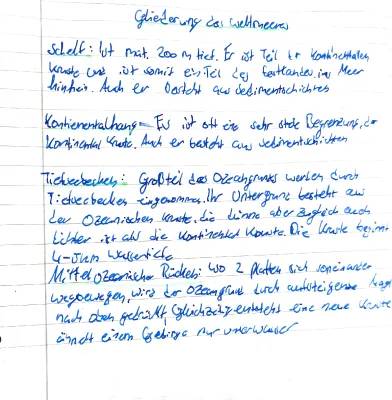 Gliederung des Weltmeeres
Schelf: Ist mat. 200 m tief. Er ist Teil der Kontinentalen
Kruste und ist somit ein Teil des Festlandes ins Meer
hinein. Auch er besteht aus Sedimentschichten
Kontinentalhang = Es ist oft eine sehr steile Begrenzung, der
Kontinental Kruste. Auch er besteht aus Sedimentschichten
Tiefseebecken: Großteil des Ozeangrunds werden durch
Tiefseebecken eingenommen. Ihr Untergrund besteht aus
der Ozeanischen Kruste. die dünne aber zugleich auch
dichter ist als die Kontinental Kruste. Die Kruste beginnt
4-5 km Wassertiefe
Mittel ozeanischer Rücken: Wo 2 Platten sich voneinander
wegbewegen, wird der Ozeangrund durch aufsteigende
nach oben gedrückt. Gleichzeitig entsteht eine neue Kruste
ähnelt einem Gebirge nur unterwasser